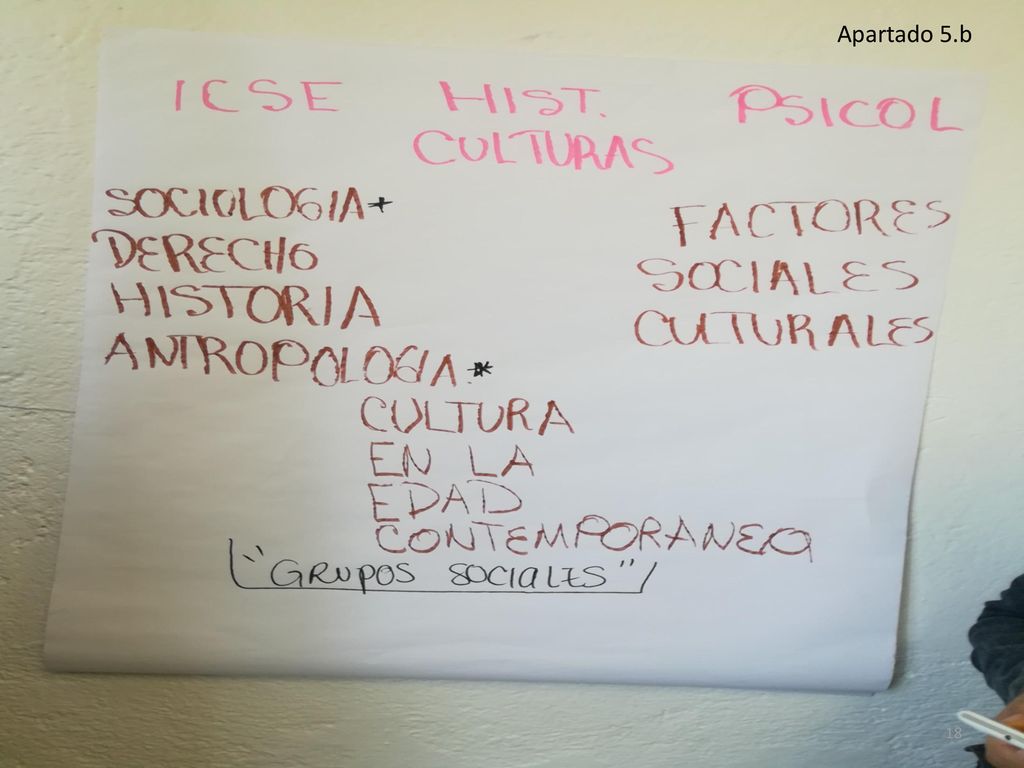 Apartado 5.b
ICSE HIST. PSICOL
CULTURAS
SOCIOLOGIA+
DERECHO
HISTORIA
ANTROPOLOGIA.*
FACTORES
SOCIALES
CULTURALES
CULTURA
EN LA
EDAD
CONTEMPORANEA
"GRUPOS SOCIALES"
18